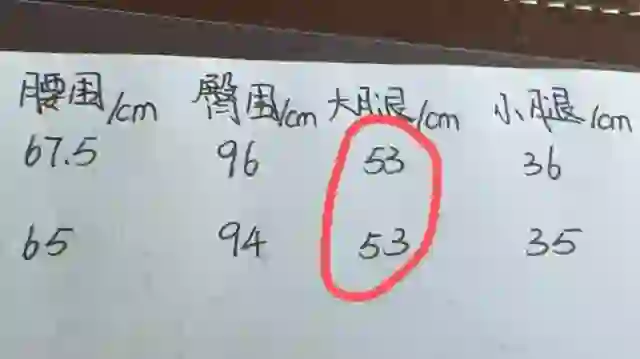 腰围/cm 臀围/cm 大腿/cm 小腿/cm
67.5 96 53 36
65 94 53 35